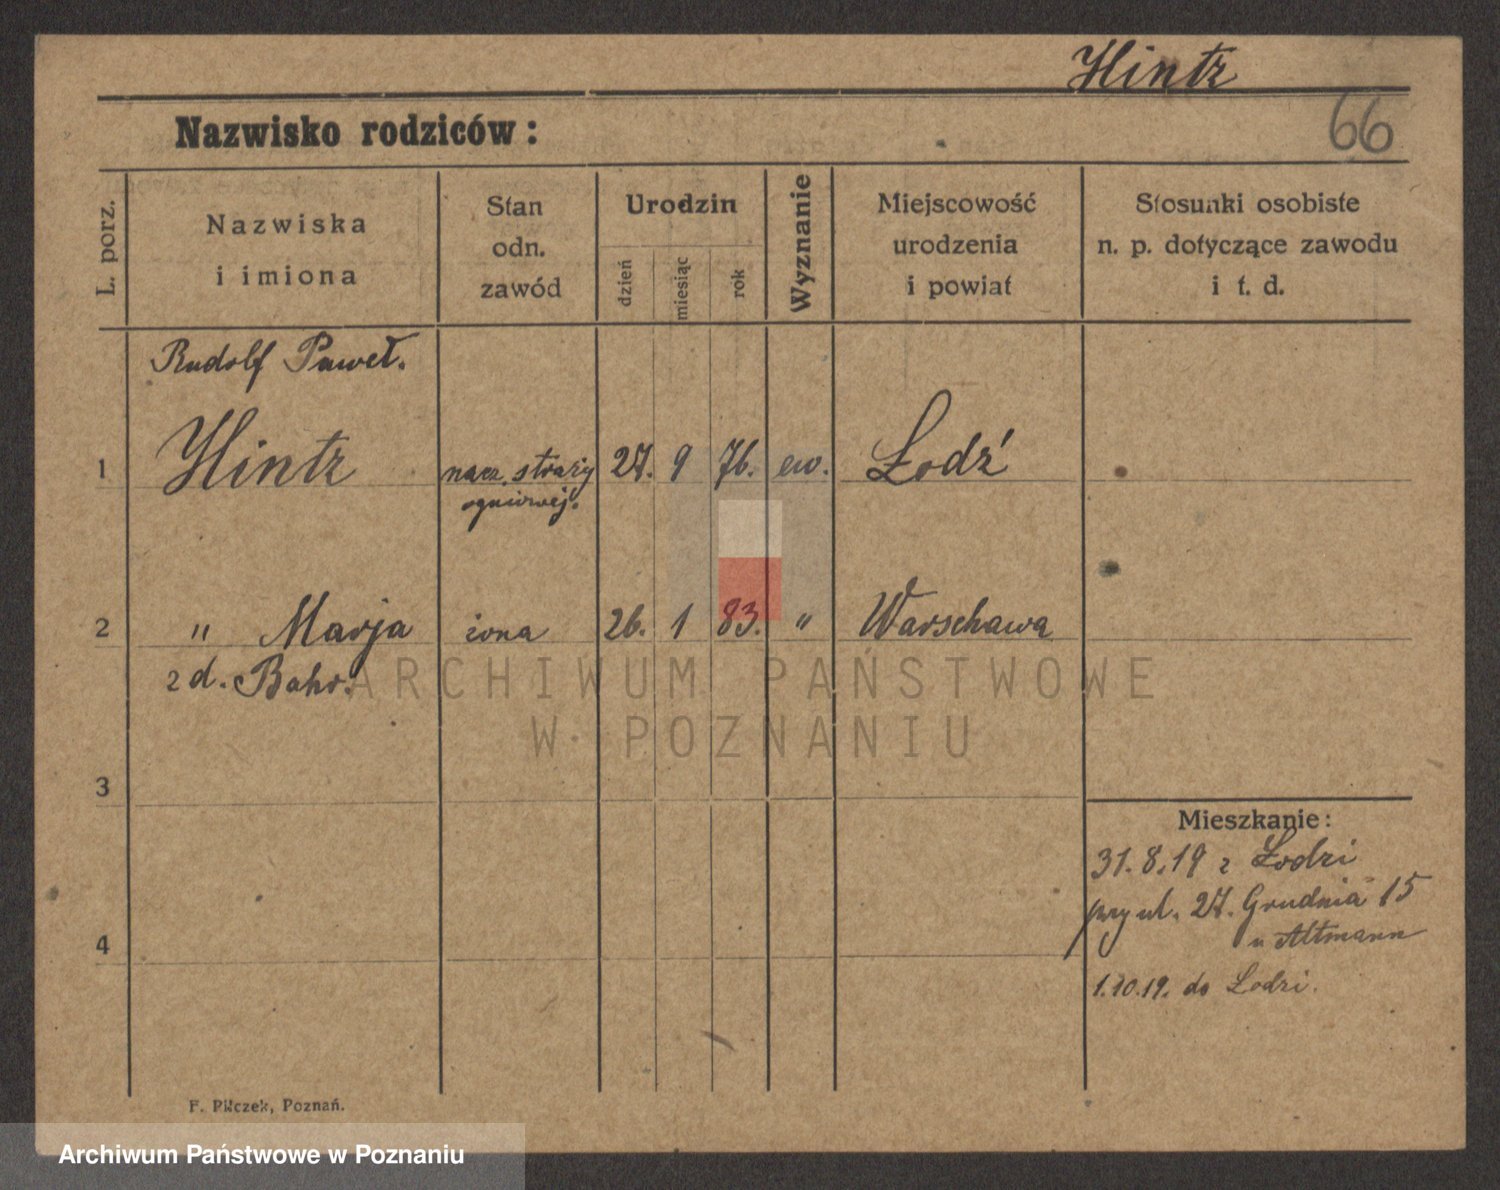 Hintz
66
Nazwisko rodziców:
L. porz.
Nazwiska
i imiona
Stan
odn.
zawód
Urodzin
dzień
miesiąc
rok
Wyznanie
Miejscowość
urodzenia
i powiat
Stosunki osobiste
n. p. dotyczące zawodu
i t. d.
Rudolf Paweł.
1 Hintz nacz. straży 27. 9 76. ew. Łodź
ogniowej.
2 " Marja żona 26. 1 83. " Warschawa
z d. Bahr.
ARCHIWUM PAŃSTWOWE
W POZNANIU
3
Mieszkanie:
31.8.19 z Łodzi
przy ul. 27. Grudnia 15
u Altmann
4
1.10.19. do Lodzi.
F. Pilczek, Poznań.
Archiwum Państwowe w Poznaniu